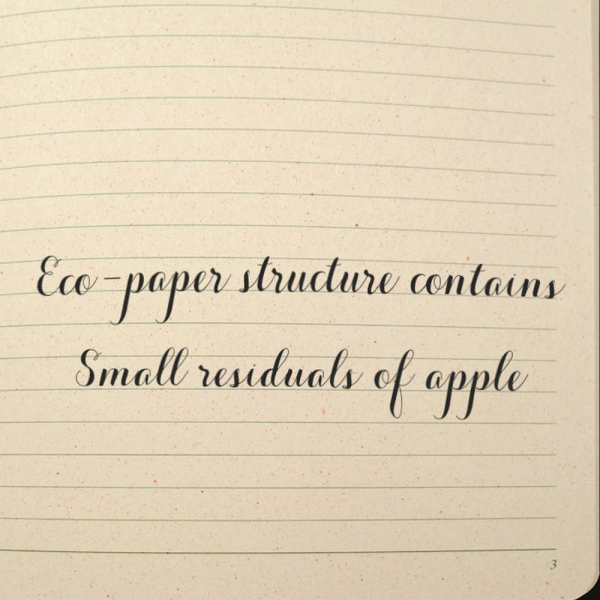 Eco-paper structure contains
Small residuals of apple
3